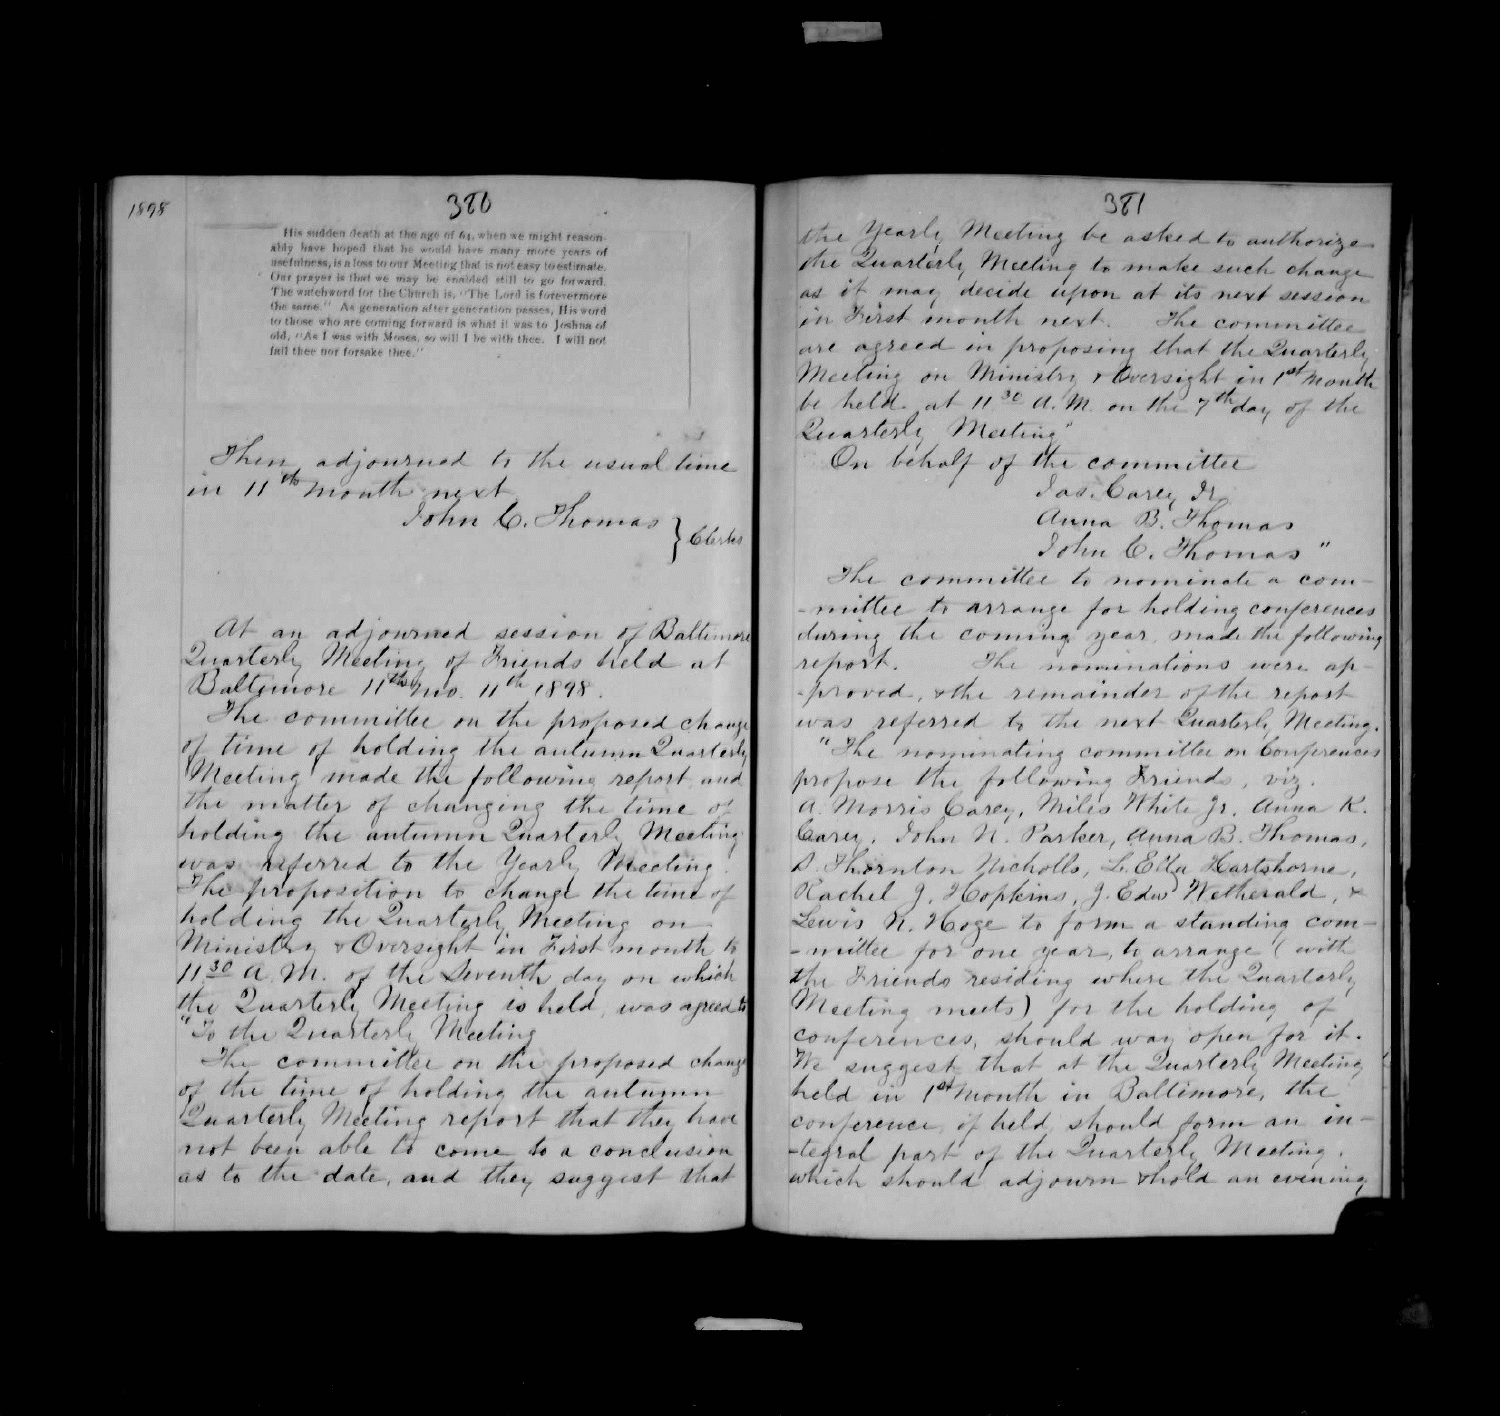 1898
380
His sudden death at the age of 64, when we might reason-
ably have hoped that he would have many more years of
usefulness, is a loss to our Meeting that is not easy to estimate.
Our prayer is that we may be enabled still to go forward.
The watchword for the Church is, "The Lord is forevermore
the same." As generation after generation passes, His word
to those who are coming forward is what it was to Joshua of
old, "As I was with Moses, so will I be with thee. I will not
fail thee nor forsake thee."
Then adjourned to the usual time
in 11th month next
John C. Thomas } Clerks
At an adjourned session of Baltimore
Quarterly Meeting of Friends held at
Baltimore 11th mo. 11th 1898.
The committee on the proposed change
of time of holding the autumn Quarterly
Meeting made the following report and
the matter of changing the time of
holding the autumn Quarterly Meeting
was referred to the Yearly Meeting.
The proposition to change the time of
holding the Quarterly Meeting on
Ministry & Oversight in First month to
11 30 A. M. of the Seventh day on which
the Quarterly Meeting is held, was agreed to
"To the Quarterly Meeting
The committee on the proposed change
of the time of holding the autumn
Quarterly Meeting report that they have
not been able to come to a conclusion
as to the date, and they suggest that
381
the Yearly Meeting be asked to authorize
the Quarterly Meeting to make such change
as it may decide upon at its next session
in First month next. The committee
are agreed in proposing that the Quarterly
Meeting on Ministry & Oversight in 1st month
be held at 11 30 A. M. on the 7th day of the
Quarterly Meeting"
On behalf of the committee
Jas. Carey Jr.
Anna B. Thomas
John C. Thomas"
The committee to nominate a com-
-mittee to arrange for holding conferences
during the coming year, made the following
report. The nominations were ap-
-proved, & the remainder of the report
was referred to the next Quarterly Meeting.
"The nominating committee on Conferences
propose the following Friends, viz.
A. Morris Carey, Miles White Jr. Anna K.
Carey, John N. Parker, Anna B. Thomas,
D. Thornton Nicholls, L. Ella Hartshorne,
Rachel J. Hopkins, J. Edw Wetherald, &
Lewis N. Hoge to form a standing com-
-mittee for one year, to arrange (with
the Friends residing where the Quarterly
Meeting meets) for the holding of
conferences, should way open for it.
We suggest that at the Quarterly Meeting
held in 1st month in Baltimore, the
conference, if held, should form an in-
-tegral part of the Quarterly Meeting,
which should adjourn & hold an evening